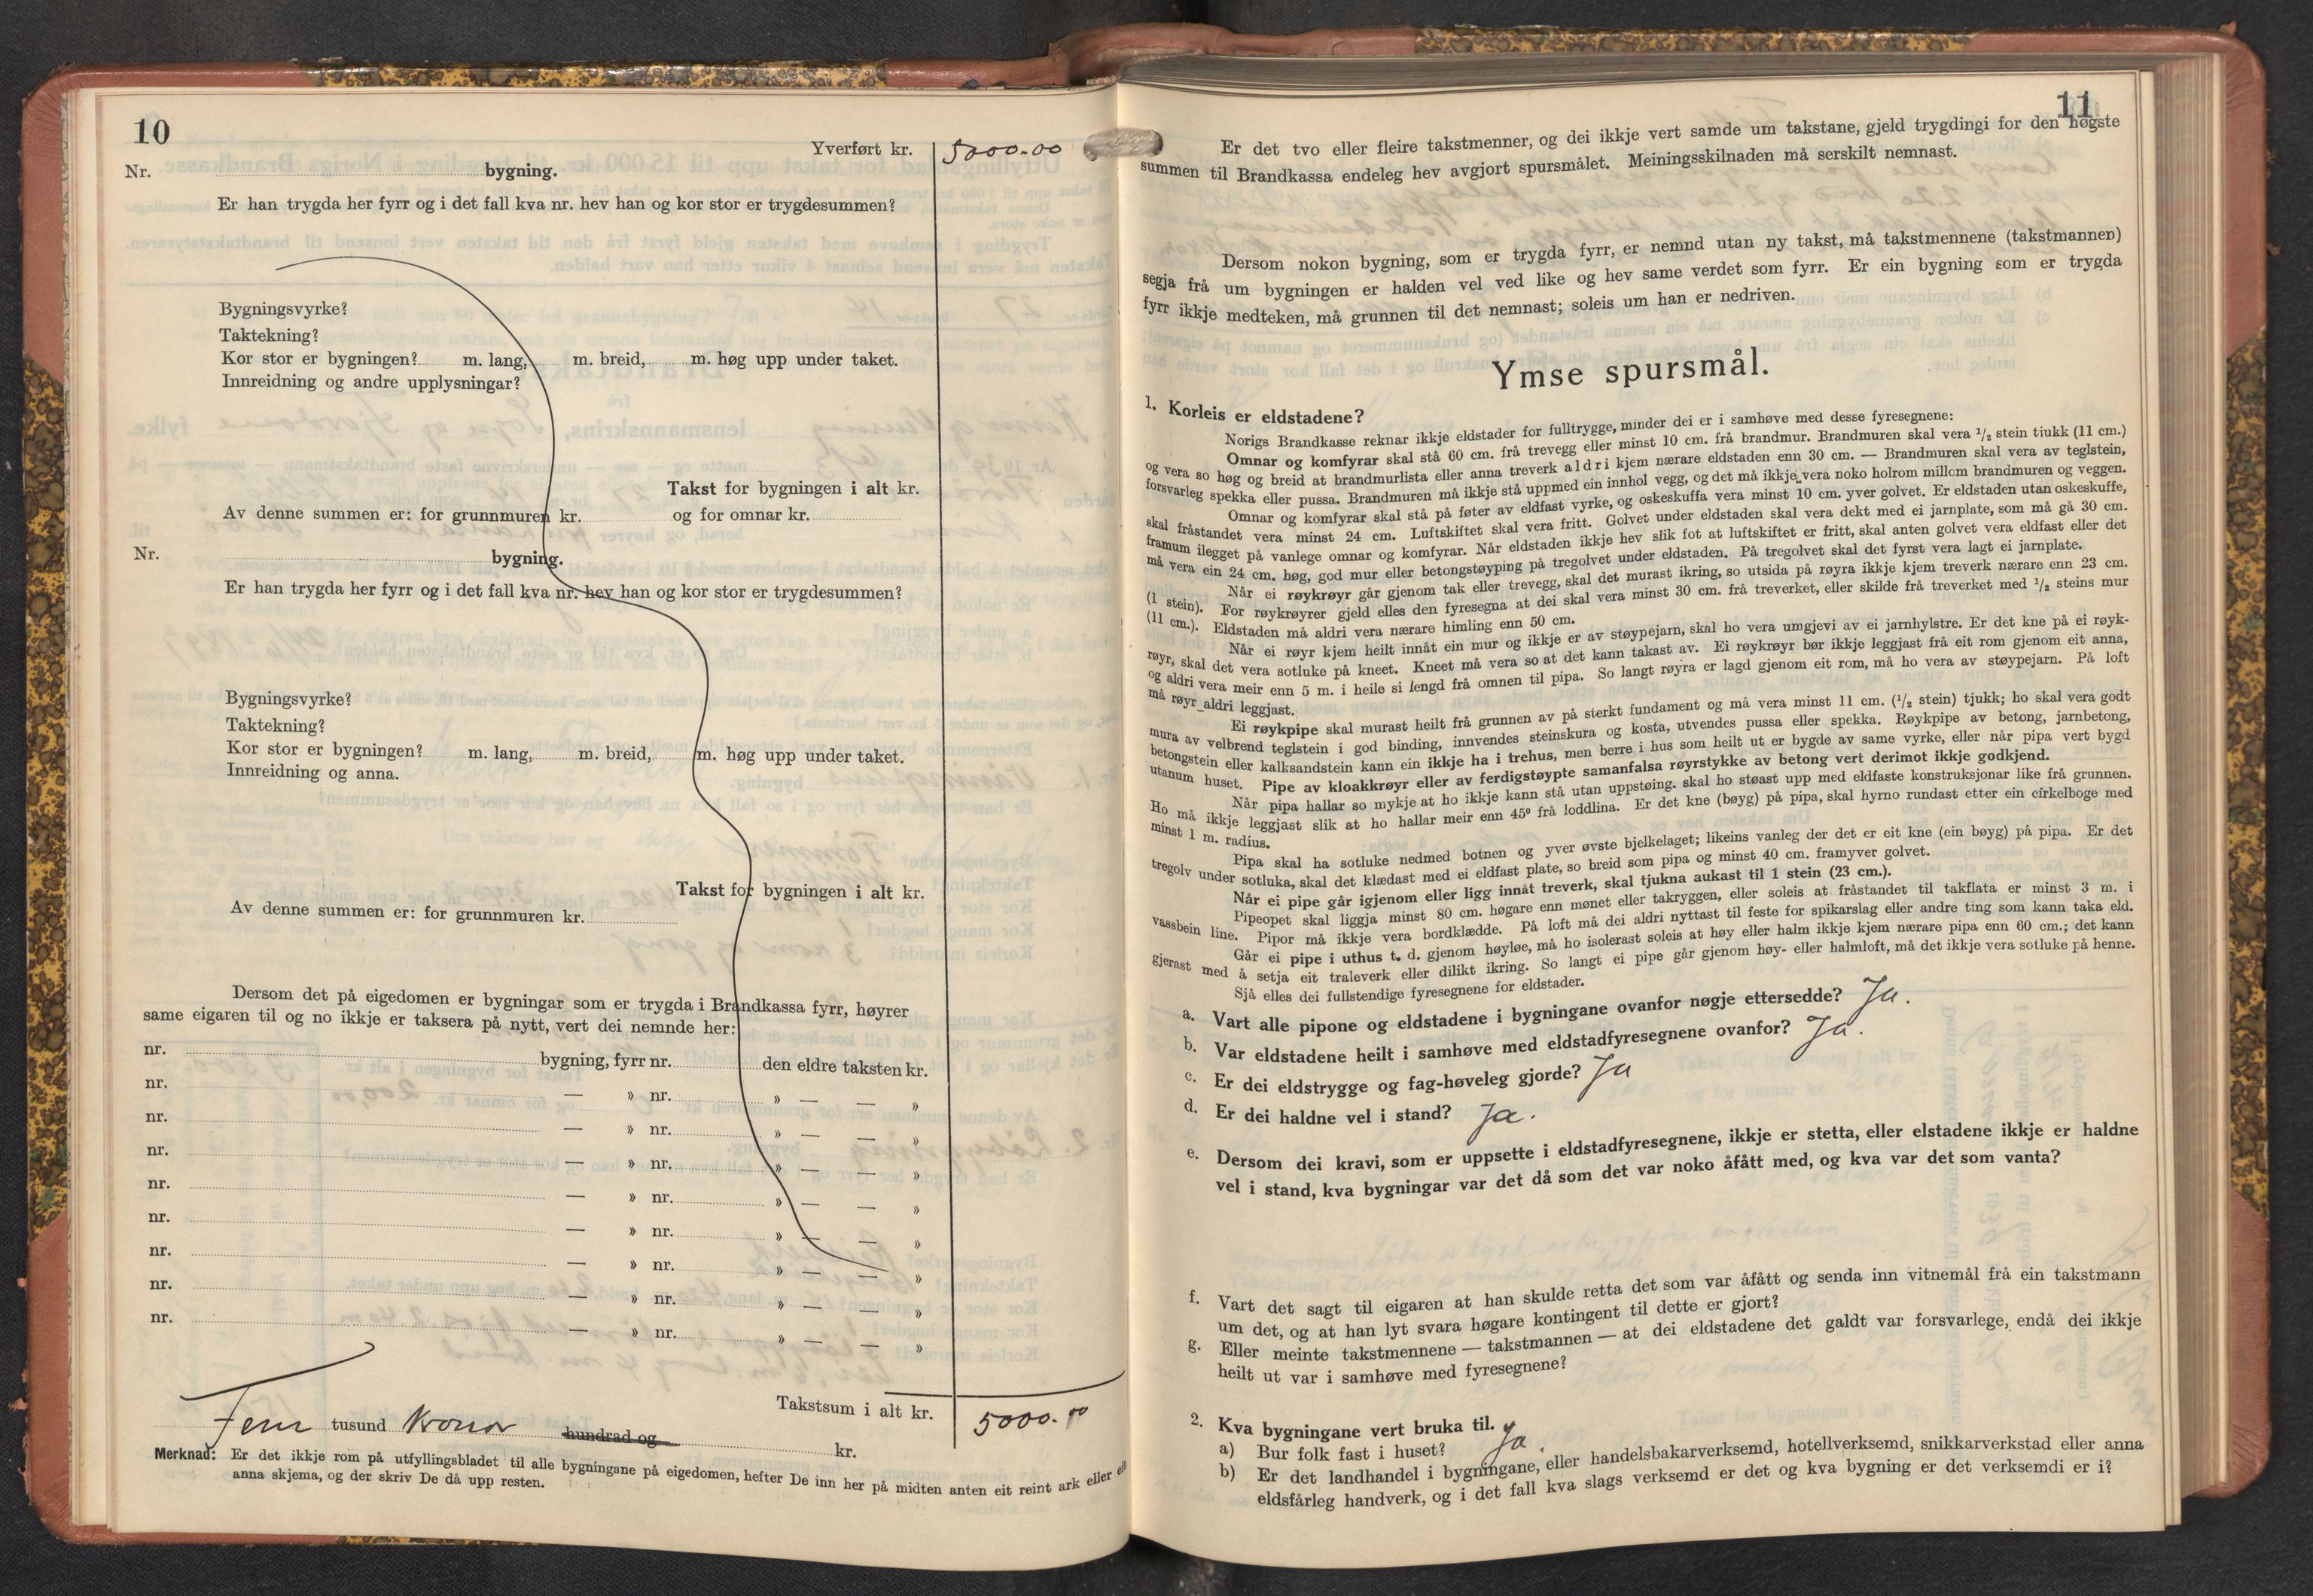 10
Yverført kr. 5000.00
Nr. bygning.
Er han trygda her fyrr og i det fall kva nr. hev han og kor stor er trygdesummen?
Bygningsvyrke?
Taktekning?
Kor stor er bygningen? m. lang, m. breid, m. høg upp under taket.
Innreidning og andre upplysningar?
Takst for bygningen i alt kr.
Av denne summen er: for grunnmuren kr. og for omnar kr.
Nr. bygning.
Er han trygda her fyrr og i det fall kva nr. hev han og kor stor er trygdesummen?
Bygningsvyrke?
Taktekning?
Kor stor er bygningen? m. lang, m. breid, m. høg upp under taket.
Innreidning og anna.
Takst for bygningen i alt kr.
Av denne summen er: for grunnmuren kr.
Dersom det på eigedomen er bygningar som er trygda i Brandkassa fyrr, høyrer
same eigaren til og no ikkje er taksera på nytt, vert dei nemnde her:
nr. bygning, fyrr nr. den eldre taksten kr.
nr. — » nr. » — — »
nr. — » nr. » — — »
nr. — » nr. » — — »
nr. — » nr. » — — »
nr. — » nr. » — — »
nr. — » nr. » — — »
nr. — » nr. » — — »
nr. — » nr. » — — »
Takstsum i alt kr. 5000.00
Fem tusund kronor hundrad og kr.
Merknad: Er det ikkje rom på utfyllingsbladet til alle bygningane på eigedomen, hefter De inn her på midten anten eit reint ark eller eit
anna skjema, og der skriv De då upp resten.
11
Er det tvo eller fleire takstmenner, og dei ikkje vert samde um takstane, gjeld trygdingi for den høgste
summen til Brandkassa endeleg hev avgjort spursmålet. Meiningsskilnaden må serskilt nemnast.
Dersom nokon bygning, som er trygda fyrr, er nemnd utan ny takst, må takstmennene (takstmannen)
segja frå um bygningen er halden vel ved like og hev same verdet som fyrr. Er ein bygning som er trygda
fyrr ikkje medteken, må grunnen til det nemnast; soleis um han er nedriven.
Ymse spursmål.
1. Korleis er eldstadene?
Norigs Brandkasse reknar ikkje eldstader for fulltrygge, minder dei er i samhøve med desse fyresegnene:
Omnar og komfyrar skal stå 60 cm. frå trevegg eller minst 10 cm. frå brandmur. Brandmuren skal vera ¹/₂ stein tiukk (11 cm.)
og vera so høg og breid at brandmurlista eller anna treverk aldri kjem nærare eldstaden enn 30 cm. — Brandmuren skal vera av teglstein,
forsvarleg spekka eller pussa. Brandmuren må ikkje stå uppmed ein innhol vegg, og det må ikkje vera noko holrom millom brandmuren og veggen.
Omnar og komfyrar skal stå på føter av eldfast vyrke, og oskeskuffa vera minst 10 cm. yver golvet. Er eldstaden utan oskeskuffe,
skal fråstandet vera minst 24 cm. Luftskiftet skal vera fritt. Golvet under eldstaden skal vera dekt med ei jarnplate, som må gå 30 cm.
framum ilegget på vanlege omnar og komfyrar. Når eldstaden ikkje hev slik fot at luftskiftet er fritt, skal anten golvet vera eldfast eller det
må vera ein 24 cm. høg, god mur eller betongstøyping på tregolvet under eldstaden. På tregolvet skal det fyrst vera lagt ei jarnplate.
Når ei røykrøyr går gjenom tak eller trevegg, skal det murast ikring, so utsida på røyra ikkje kjem treverk nærare enn 23 cm.
(1 stein). For røykrøyrer gjeld elles den fyresegna at dei skal vera minst 30 cm. frå treverket, eller skilde frå treverket med ¹/₂ steins mur
(11 cm.). Eldstaden må aldri vera nærare himling enn 50 cm.
Når ei røyr kjem heilt innåt ein mur og ikkje er av støypejarn, skal ho vera umgjevi av ei jarnhylstre. Er det kne på ei røyk-
røyr, skal det vera sotluke på kneet. Kneet må vera so at det kann takast av. Ei røykrøyr bør ikkje leggjast frå eit rom gjenom eit anna,
og aldri vera meir enn 5 m. i heile si lengd frå omnen til pipa. So langt røyra er lagd gjenom eit rom, må ho vera av støypejarn. På loft
må røyr aldri leggjast.
Ei røykpipe skal murast heilt frå grunnen av på sterkt fundament og må vera minst 11 cm. (¹/₂ stein) tjukk; ho skal vera godt
mura av velbrend teglstein i god binding, innvendes steinskura og kosta, utvendes pussa eller spekka. Røykpipe av betong, jarnbetong,
betongstein eller kalksandstein kann ein ikkje ha i trehus, men berre i hus som heilt ut er bygde av same vyrke, eller når pipa vert bygd
utanum huset. Pipe av kloakkrøyr eller av ferdigstøypte samanfalsa røyrstykke av betong vert derimot ikkje godkjend.
Når pipa hallar so mykje at ho ikkje kann stå utan uppstøing. skal ho støast upp med eldfaste konstruksjonar like frå grunnen.
Ho må ikkje leggjast slik at ho hallar meir enn 45⁰ frå loddlina. Er det kne (bøyg) på pipa, skal hyrno rundast etter ein cirkelboge med
minst 1 m. radius.
Pipa skal ha sotluke nedmed botnen og yver øvste bjelkelaget; likeins vanleg der det er eit kne (ein bøyg) på pipa. Er det
tregolv under sotluka, skal det klædast med ei eldfast plate, so breid som pipa og minst 40 cm. framyver golvet.
Når ei pipe går igjenom eller ligg innåt treverk, skal tjukna aukast til 1 stein (23 cm.).
Pipeopet skal liggja minst 80 cm. høgare enn mønet eller takryggen, eller soleis at fråstandet til takflata er minst 3 m. i
vassbein line. Pipor må ikkje vera bordklædde. På loft må dei aldri nyttast til feste for spikarslag eller andre ting som kann taka eld.
Går ei pipe i uthus t. d. gjenom høyløe, må ho isolerast soleis at høy eller halm ikkje kjem nærare pipa enn 60 cm.; det kann
gjerast med å setja eit traleverk eller dilikt ikring. So langt ei pipe går gjenom høy- eller halmloft, må det ikkje vera sotluke på henne.
Sjå elles dei fullstendige fyresegnene for eldstader.
a. Vart alle pipone og eldstadene i bygningane ovanfor nøgje ettersedde? Ja.
b. Var eldstadene heilt i samhøve med eldstadfyresegnene ovanfor? Ja.
c. Er dei eldstrygge og fag-høveleg gjorde? Ja
d. Er dei haldne vel i stand? Ja.
e. Dersom dei kravi, som er uppsette i eldstadfyresegnene, ikkje er stetta, eller elstadene ikkje er haldne
vel i stand, kva bygningar var det då som det var noko åfått med, og kva var det som vanta?
f. Vart det sagt til eigaren at han skulde retta det som var åfått og senda inn vitnemål frå ein takstmann
um det, og at han lyt svara høgare kontingent til dette er gjort?
g. Eller meinte takstmennene — takstmannen — at dei eldstadene det galdt var forsvarlege, endå dei ikkje
heilt ut var i samhøve med fyresegnene?
2. Kva bygningane vert bruka til.
a) Bur folk fast i huset? Ja.
b) Er det landhandel i bygningane, eller handelsbakarverksemd, hotellverksemd, snikkarverkstad eller anna
eldsfårleg handverk, og i det fall kva slags verksemd er det og kva bygning er det verksemdi er i?